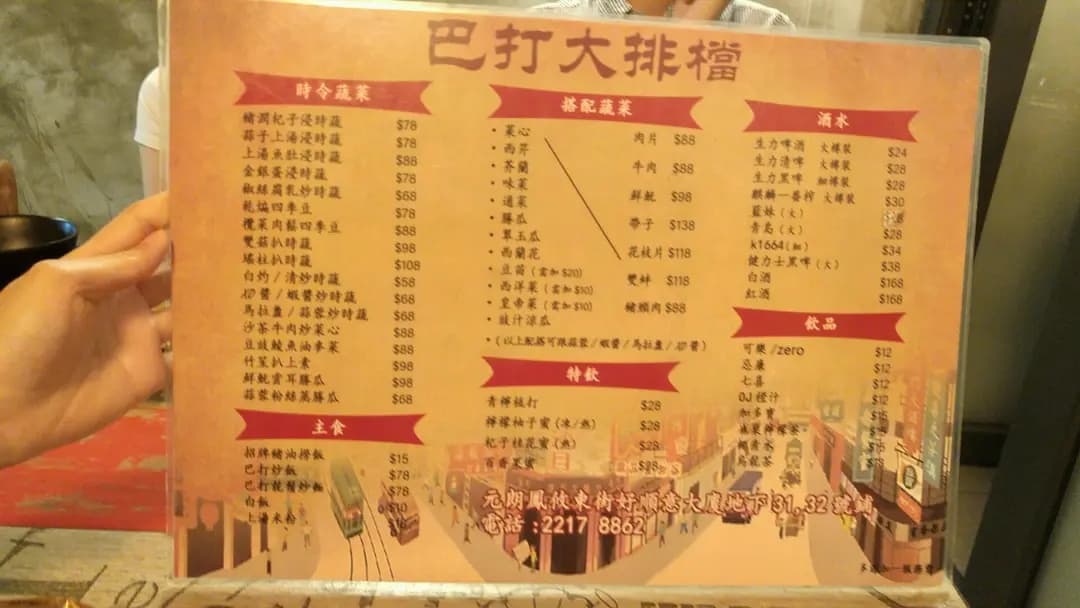 巴打大排檔
時令蔬菜
豬潤杞子浸時蔬 $78
蒜子上湯浸時蔬 $78
上湯魚肚浸時蔬 $88
金銀蛋浸時蔬 $78
椒絲腐乳炒時蔬 $68
乾煸四季豆 $78
欖菜肉鬆四季豆 $88
雙菇扒時蔬 $98
瑤柱扒時蔬 $108
白灼/清炒時蔬 $58
XO醬/蝦醬炒時蔬 $68
馬拉盞/蒜蓉炒時蔬 $68
沙茶牛肉炒菜心 $88
豆豉鯪魚油麥菜 $88
竹笙扒上素 $98
鮮魷雲耳勝瓜 $98
蒜蓉粉絲蒸勝瓜 $68
主食
招牌豬油撈飯 $15
巴打炒飯 $78
巴打靚醬炒飯 $78
白飯 $10
上湯米粉
搭配蔬菜
• 菜心
• 西芹
• 芥蘭
• 味菜
• 通菜
• 勝瓜
• 翠玉瓜
• 西蘭花
• 豆苗(需加$20)
• 西洋菜(需加$10)
• 皇帝菜(需加$10)
• 豉汁涼瓜
肉片 $88
牛肉 $88
鮮魷 $98
帶子 $138
花枝片 $118
雙蚌 $118
豬頸肉 $88
• (以上配搭可跟蒜蓉/蝦醬/馬拉盞/XO醬)
特飲
青檸梳打 $28
檸檬柚子蜜(凍/熱) $28
杞子桂花蜜(熱) $28
百香果蜜 $28
酒水
生力啤酒 大樽裝 $24
生力清啤 大樽裝 $28
生力黑啤 細樽裝 $28
麒麟一番榨 大樽裝 $30
藍妹(大)
青島(大) $28
k1664(細) $34
健力士黑啤(大) $38
白酒 $168
紅酒 $168
飲品
可樂/zero $12
忌廉 $12
七喜 $12
OJ橙汁 $12
加多寶 $15
檸檬茶
烏龍茶
元朗鳳攸東街好順意大廈地下31,32號舖
電話:2217 8862